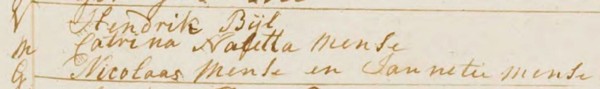 V Hendrik Bijl
M Catrina Naletta Mense
G Nicolaas Mense en Jannetie Mense